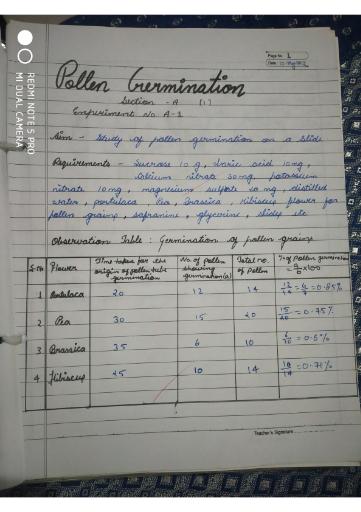 Page No. 1
Date
Pollen Germination
Section - A (1)
Experiment No. A-1
Aim - Study of pollen germination on a slide
Requirements - Sucrose 10 g, boric acid 10 mg,
calcium nitrate 30 mg, potassium
nitrate 10 mg, magnesium sulfate 20 mg, distilled
water, portulaca, Pea, Brassica, Hibiscus flower for
pollen grains, safranine, glycerine, slides etc
Observation Table : Germination of pollen grains
S.No Flower Time taken for the origin of pollen tube germination No. of pollen showing germination (a) Total no. of Pollen % of Pollen germination = a/b × 100
1 Portulaca 20 12 14 12/14 = 6/7 = 0.85%
2 Pea 30 15 20 15/20 = 0.75%
3 Brassica 35 6 10 6/10 = 0.6%
4 Hibiscus 45 10 14 10/14 = 0.71%
Teacher's Signature
REDMI NOTE 5 PRO
MI DUAL CAMERA